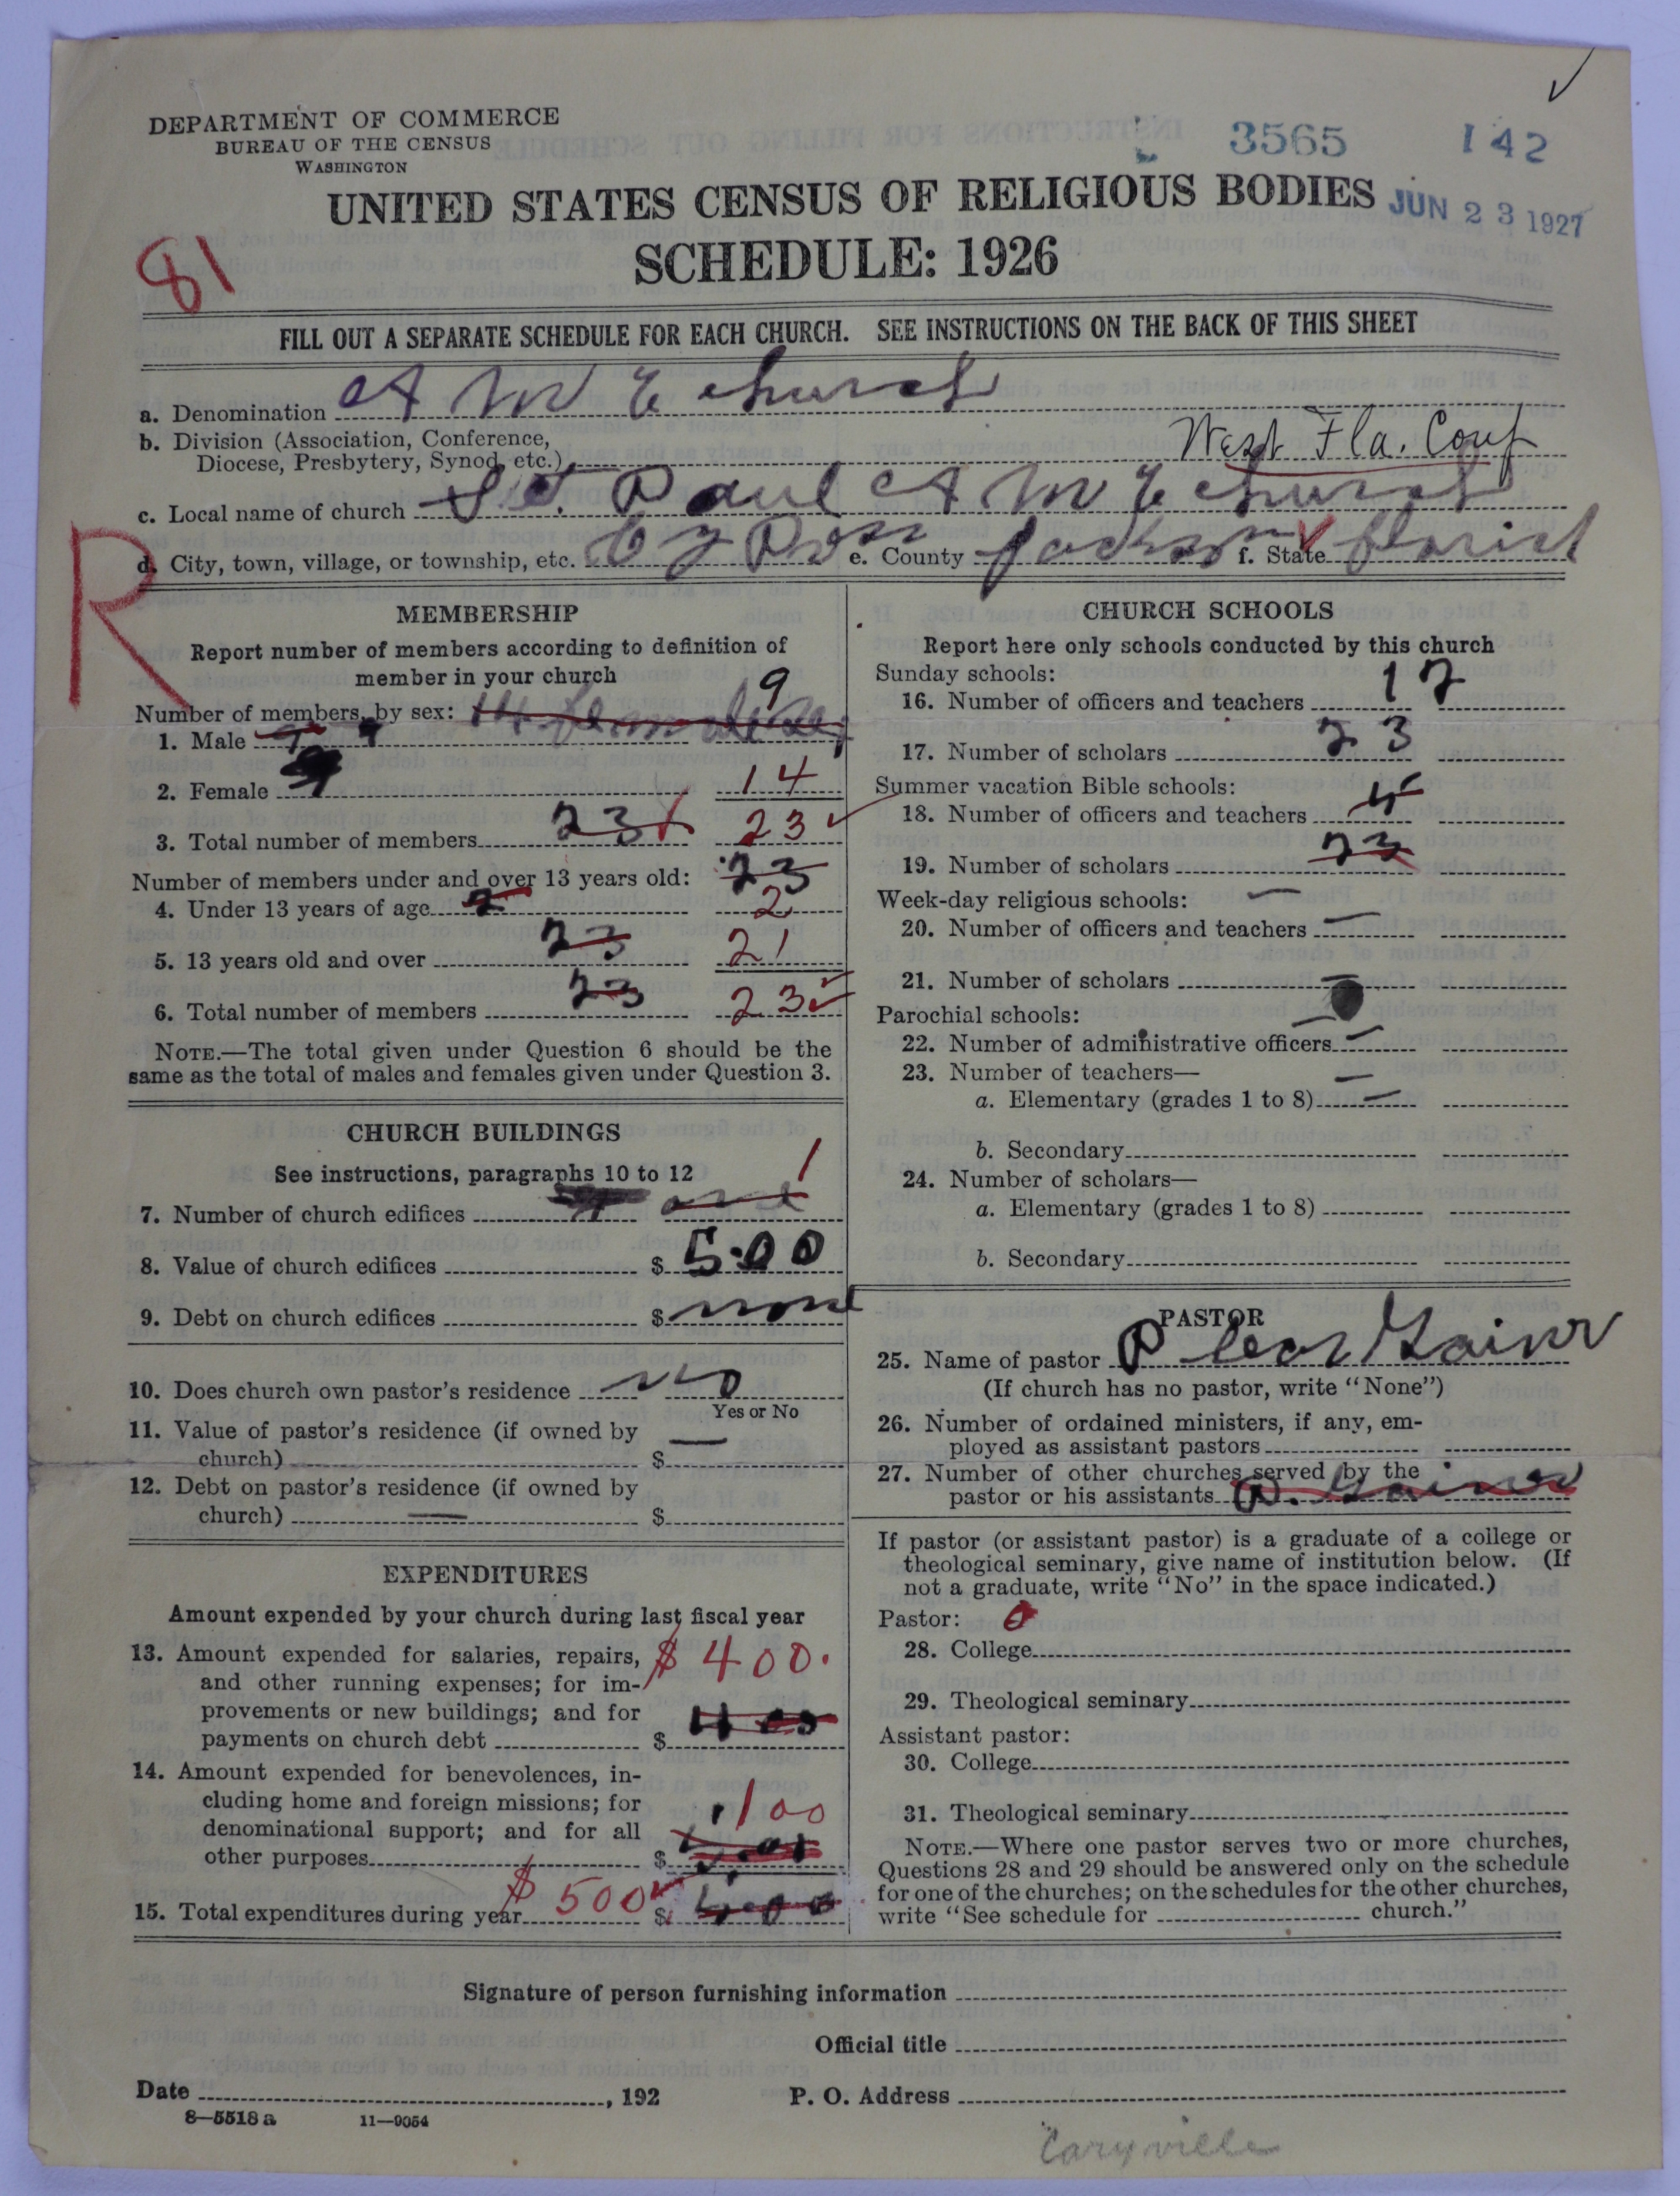 DEPARTMENT OF COMMERCE
BUREAU OF THE CENSUS
WASHINGTON
3565 142
UNITED STATES CENSUS OF RELIGIOUS BODIES
JUN 23 1927
SCHEDULE: 1926
81
FILL OUT A SEPARATE SCHEDULE FOR EACH CHURCH. SEE INSTRUCTIONS ON THE BACK OF THIS SHEET
a. Denomination A M E church
b. Division (Association, Conference,
Diocese, Presbytery, Synod, etc.) West Fla. Conf
c. Local name of church St. Paul A M E church
d. City, town, village, or township, etc. e. County Jackson f. State
R
MEMBERSHIP
Report number of members according to definition of
member in your church
Number of members, by sex: 9
1. Male
2. Female 14
3. Total number of members 23 23
Number of members under and over 13 years old: 23
4. Under 13 years of age 2 2
5. 13 years old and over 23 21
6. Total number of members 23 23
NOTE.—The total given under Question 6 should be the
same as the total of males and females given under Question 3.
CHURCH BUILDINGS
See instructions, paragraphs 10 to 12 1
7. Number of church edifices one
8. Value of church edifices $ 5.00
9. Debt on church edifices $ none
10. Does church own pastor's residence no
Yes or No
11. Value of pastor's residence (if owned by
church) $ —
12. Debt on pastor's residence (if owned by
church) — $
EXPENDITURES
Amount expended by your church during last fiscal year
13. Amount expended for salaries, repairs, $400.
and other running expenses; for im-
provements or new buildings; and for
payments on church debt $ 400
14. Amount expended for benevolences, in-
cluding home and foreign missions; for
denominational support; and for all 100
other purposes $
15. Total expenditures during year $500 $
CHURCH SCHOOLS
Report here only schools conducted by this church
Sunday schools:
16. Number of officers and teachers 17
17. Number of scholars 23
Summer vacation Bible schools:
18. Number of officers and teachers 5
19. Number of scholars 23
Week-day religious schools: —
20. Number of officers and teachers —
21. Number of scholars —
Parochial schools: —
22. Number of administrative officers —
23. Number of teachers— —
a. Elementary (grades 1 to 8) —
b. Secondary
24. Number of scholars—
a. Elementary (grades 1 to 8)
b. Secondary
PASTOR
25. Name of pastor Gainer
(If church has no pastor, write "None")
26. Number of ordained ministers, if any, em-
ployed as assistant pastors
27. Number of other churches served by the
pastor or his assistants Gainer
If pastor (or assistant pastor) is a graduate of a college or
theological seminary, give name of institution below. (If
not a graduate, write "No" in the space indicated.)
Pastor: 0
28. College
29. Theological seminary
Assistant pastor:
30. College
31. Theological seminary
NOTE.—Where one pastor serves two or more churches,
Questions 28 and 29 should be answered only on the schedule
for one of the churches; on the schedules for the other churches,
write "See schedule for church."
Signature of person furnishing information
Official title
Date , 192 P. O. Address
8—5518 a 11—9054
Caryville